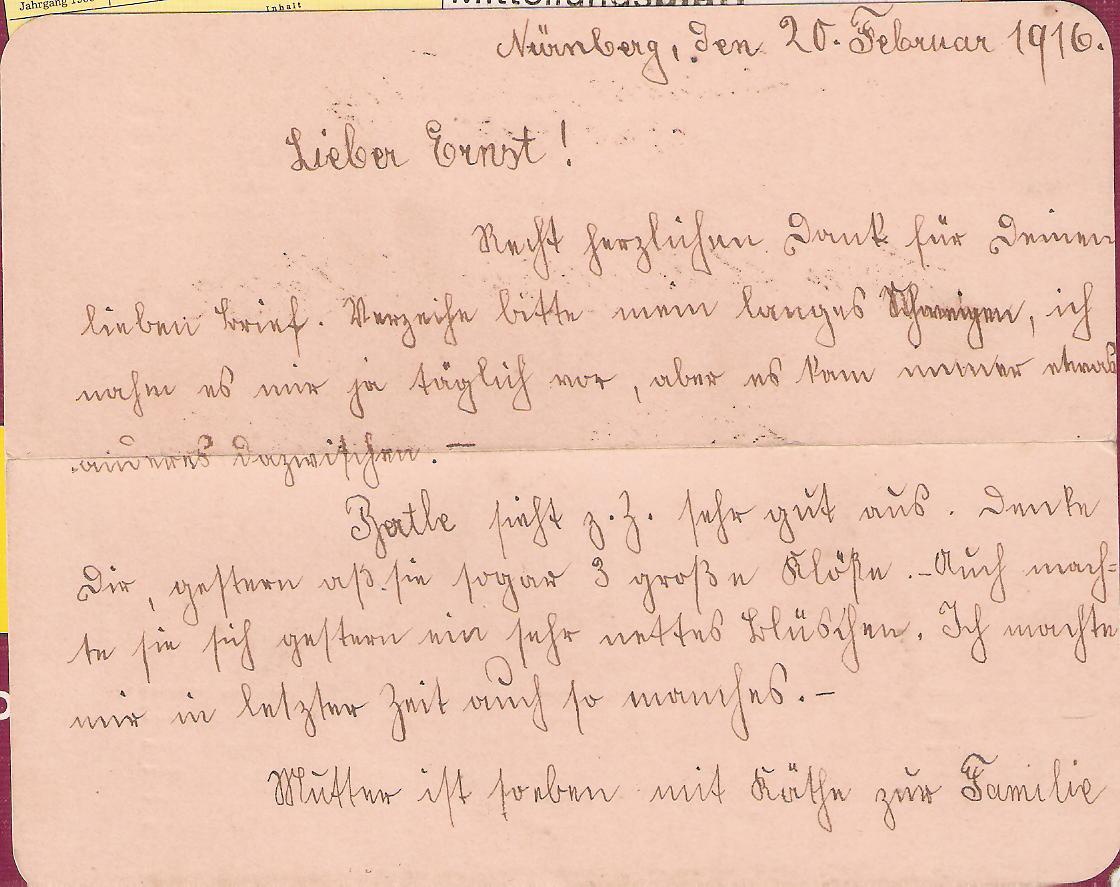 Jahrgang
Inhalt
Mitteilungsblatt
Nürnberg, den 20. Februar 1916.
Lieber Ernst!
Recht herzlichen Dank für Deinen
lieben Brief. Verzeihe bitte mein langes Schweigen, ich
nahm es mir ja täglich vor, aber es kam immer etwas
anderes dazwischen. –
Betle sieht z. Z. sehr gut aus. Denke
Dir, gestern aß sie sogar 3 große Klöße. – Auch mach=
te sie sich gestern ein sehr nettes Blüschen. Ich machte
mir in letzter Zeit auch so manches. –
Mutter ist soeben mit Käthe zur Familie